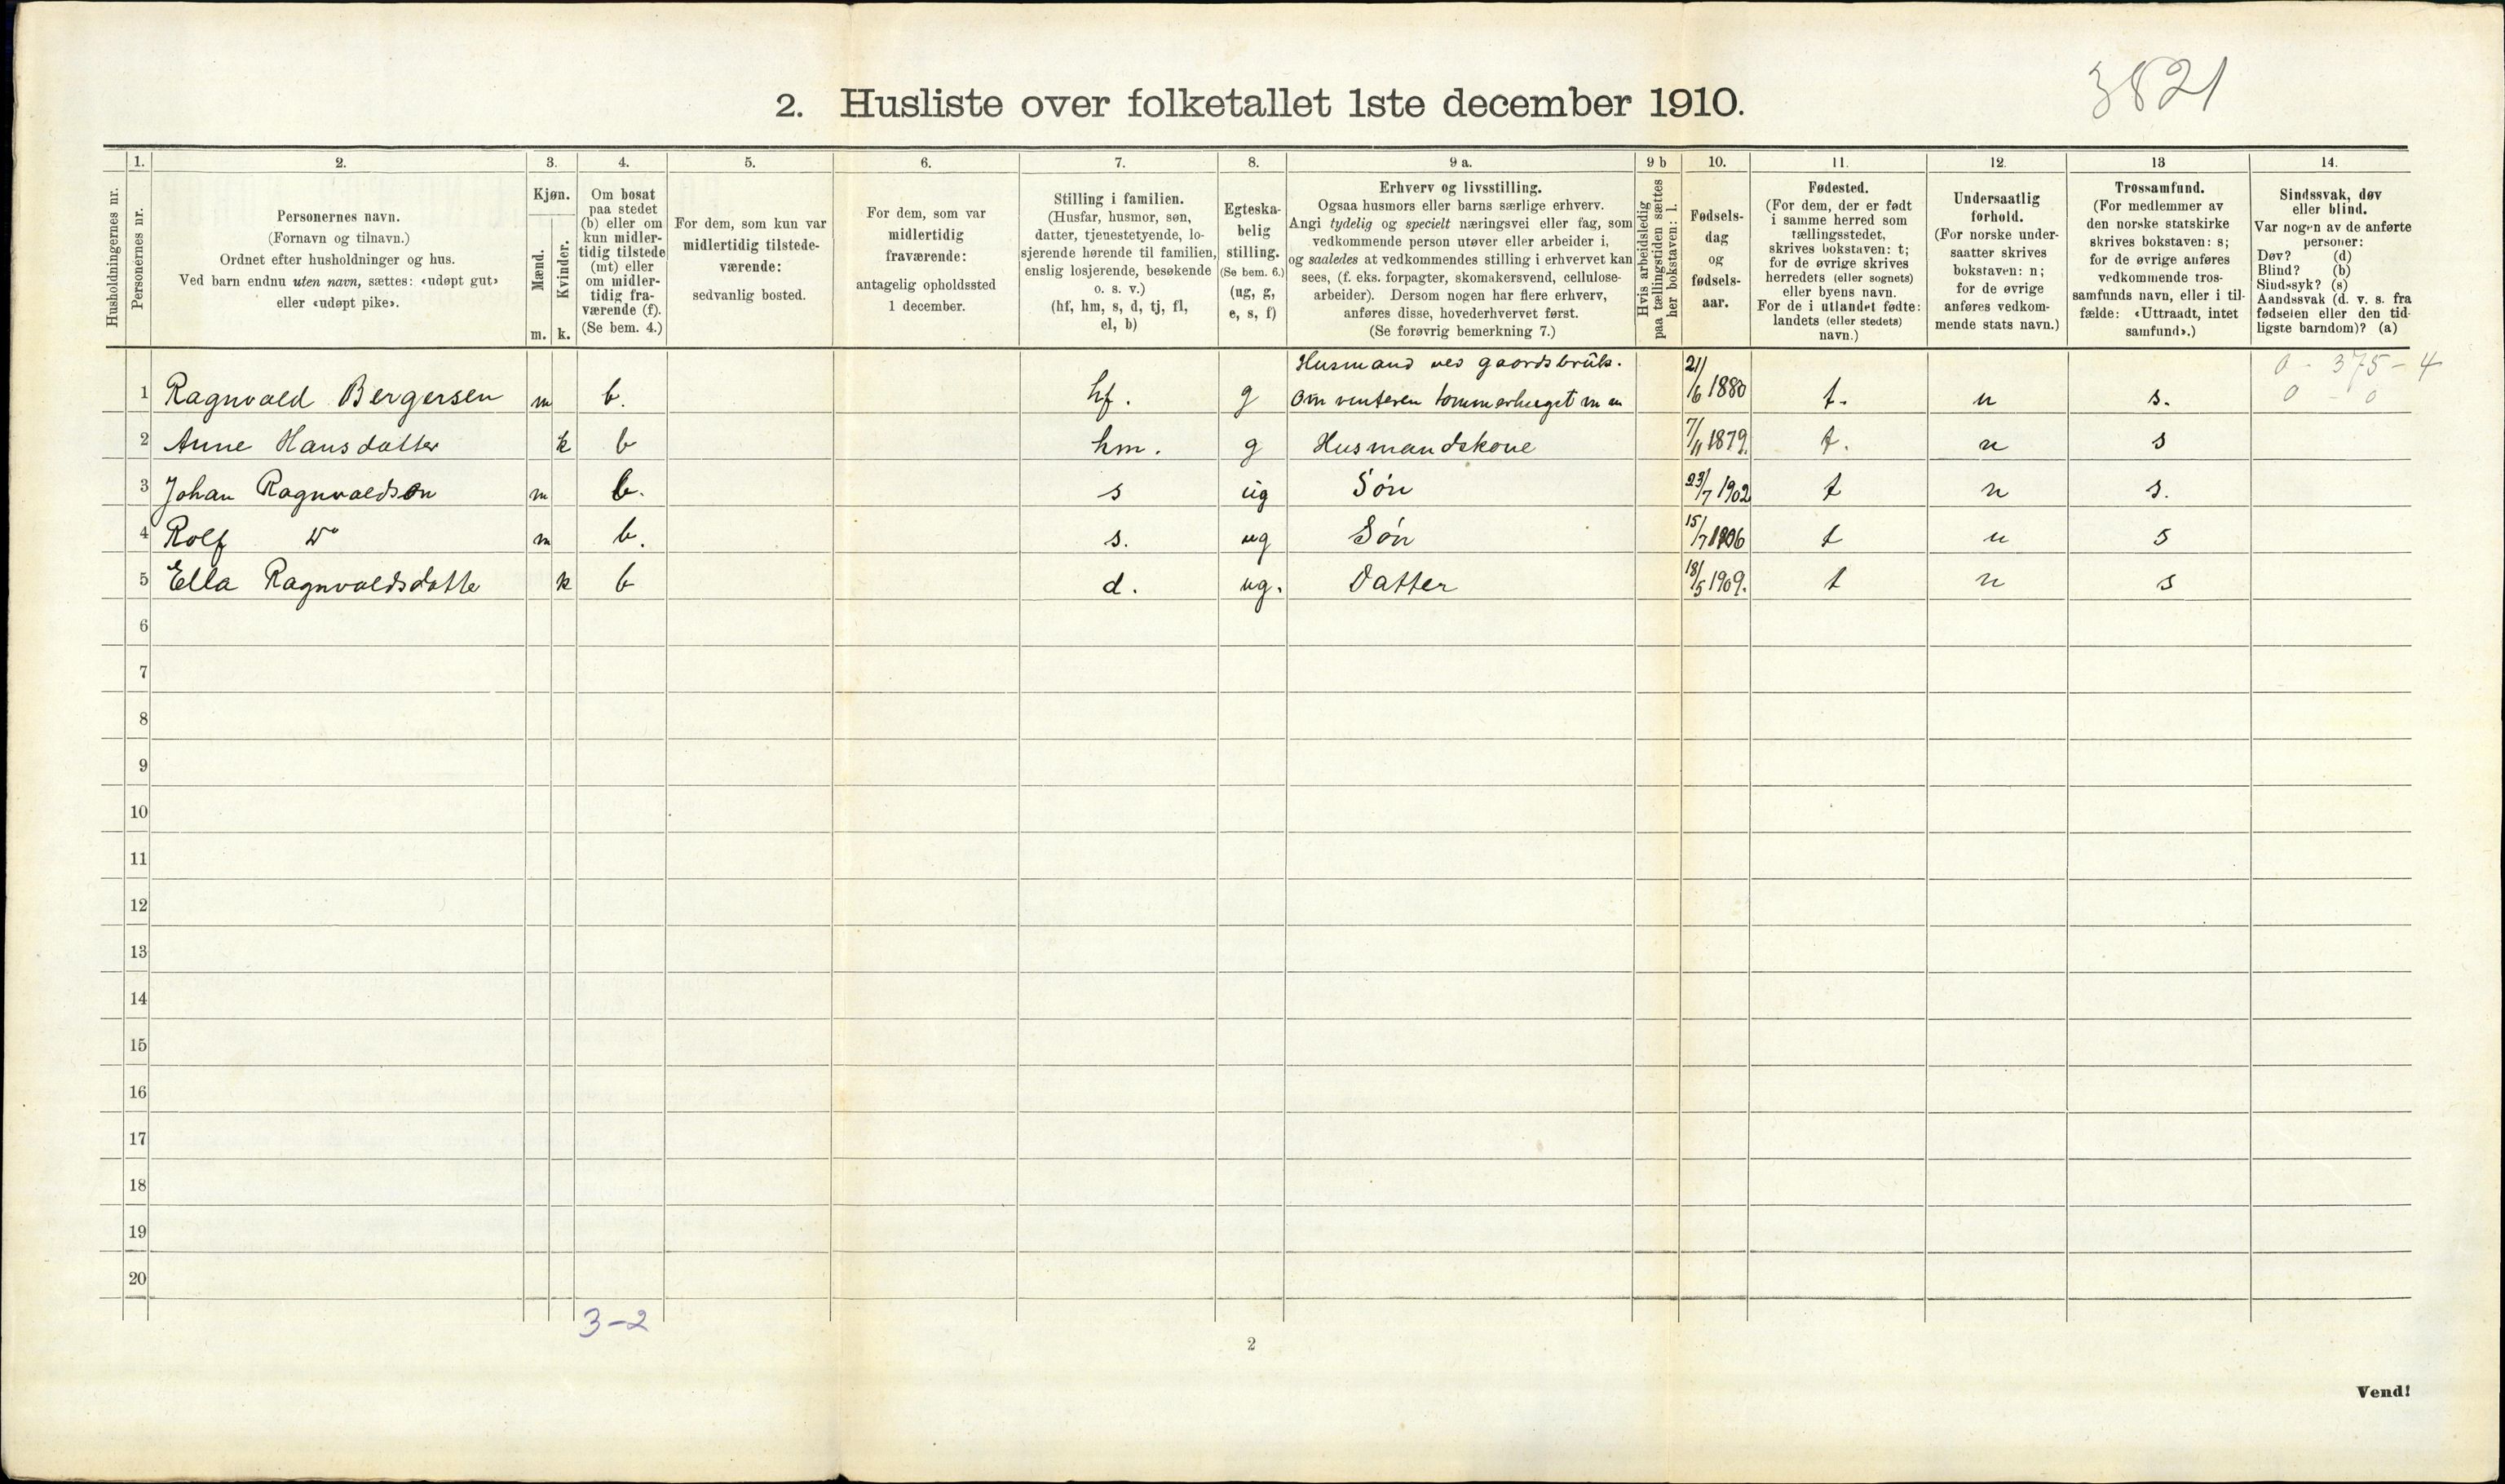 3821
2. Husliste over folketallet 1ste december 1910.
Husholdningernes nr.
1.
Personernes nr.
2.
Personernes navn.
(Fornavn og tilnavn.)
Ordnet efter husholdninger og hus.
Ved barn endnu uten navn, sættes: «udøpt gut»
eller «udøpt pike».
3.
Kjøn.
Mænd.
Kvinder.
m. k.
4.
Om bosat
paa stedet
(b) eller om
kun midler-
tidig tilstede
(mt) eller
om midler-
tidig fra-
værende (f).
(Se bem. 4.)
5.
For dem, som kun var
midlertidig tilstede-
værende:
sedvanlig bosted.
6.
For dem, som var
midlertidig
fraværende:
antagelig opholdssted
1 december.
7.
Stilling i familien.
(Husfar, husmor, søn,
datter, tjenestetyende, lo-
sjerende hørende til familien,
enslig losjerende, besøkende
o. s. v.)
(hf, hm, s, d, tj, fl,
el, b)
8.
Egteska-
belig
stilling.
(Se bem. 6.)
(ug, g,
e, s, f)
9 a.
Erhverv og livsstilling.
Ogsaa husmors eller barns særlige erhverv.
Angi tydelig og specielt næringsvei eller fag, som
vedkommende person utøver eller arbeider i,
og saaledes at vedkommendes stilling i erhvervet kan
sees, (f. eks. forpagter, skomakersvend, cellulose-
arbeider). Dersom nogen har flere erhverv,
anføres disse, hovederhvervet først.
(Se forøvrig bemerkning 7.)
9 b
Hvis arbeidsledig
paa tællingstiden sættes
her bokstaven: l.
10.
Fødsels-
dag
og
fødsels-
aar.
11.
Fødested.
(For dem, der er født
i samme herred som
tællingsstedet,
skrives bokstaven: t;
for de øvrige skrives
herredets (eller sognets)
eller byens navn.
For de i utlandet fødte:
landets (eller stedets)
navn.)
12.
Undersaatlig
forhold.
(For norske under-
saatter skrives
bokstaven: n;
for de øvrige
anføres vedkom-
mende stats navn.)
13
Trossamfund.
(For medlemmer av
den norske statskirke
skrives bokstaven: s;
for de øvrige anføres
vedkommende tros-
samfunds navn, eller i til-
fælde: «Uttraadt, intet
samfund».)
14.
Sindssvak, døv
eller blind.
Var nogen av de anførte
personer:
Døv? (d)
Blind? (b)
Sindssyk? (s)
Aandssvak (d. v. s. fra
fødselen eller den tid-
ligste barndom)? (a)
Husmand ved gaardsbruk. 0 - 375 - 4
1 Ragnvald Bergersen m b. hf. g Om vinteren tømmerhugst m m 21/6 1880 t. n s. 0 - 0
2 Anne Hansdatter k b hm. g Husmandskone 7/11 1879. t. n s
3 Johan Ragnvaldsøn m b. s ug Søn 23/7 1902 t n s.
4 Rolf Do m b. s. ug Søn 15/7 1906 t n s
5 Ella Ragnvaldsdatte k b d. ug. Datter 18/5 1909. t n s
6
7
8
9
10
11
12
13
14
15
16
17
18
19
20
3-2
2
Vend!